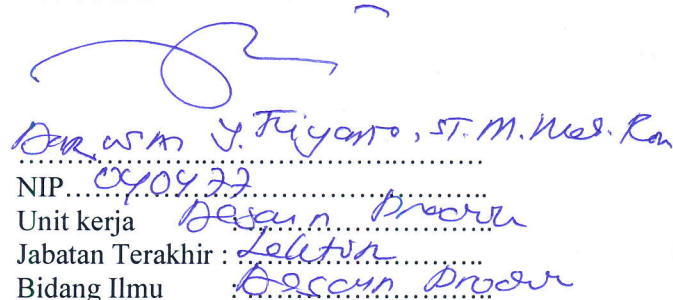 Darwin Y. Riyanto, ST. M. Med. Kom
NIP...040477
Unit kerja Desain Produk
Jabatan Terakhir : Lektor
Bidang Ilmu : Desain Produk